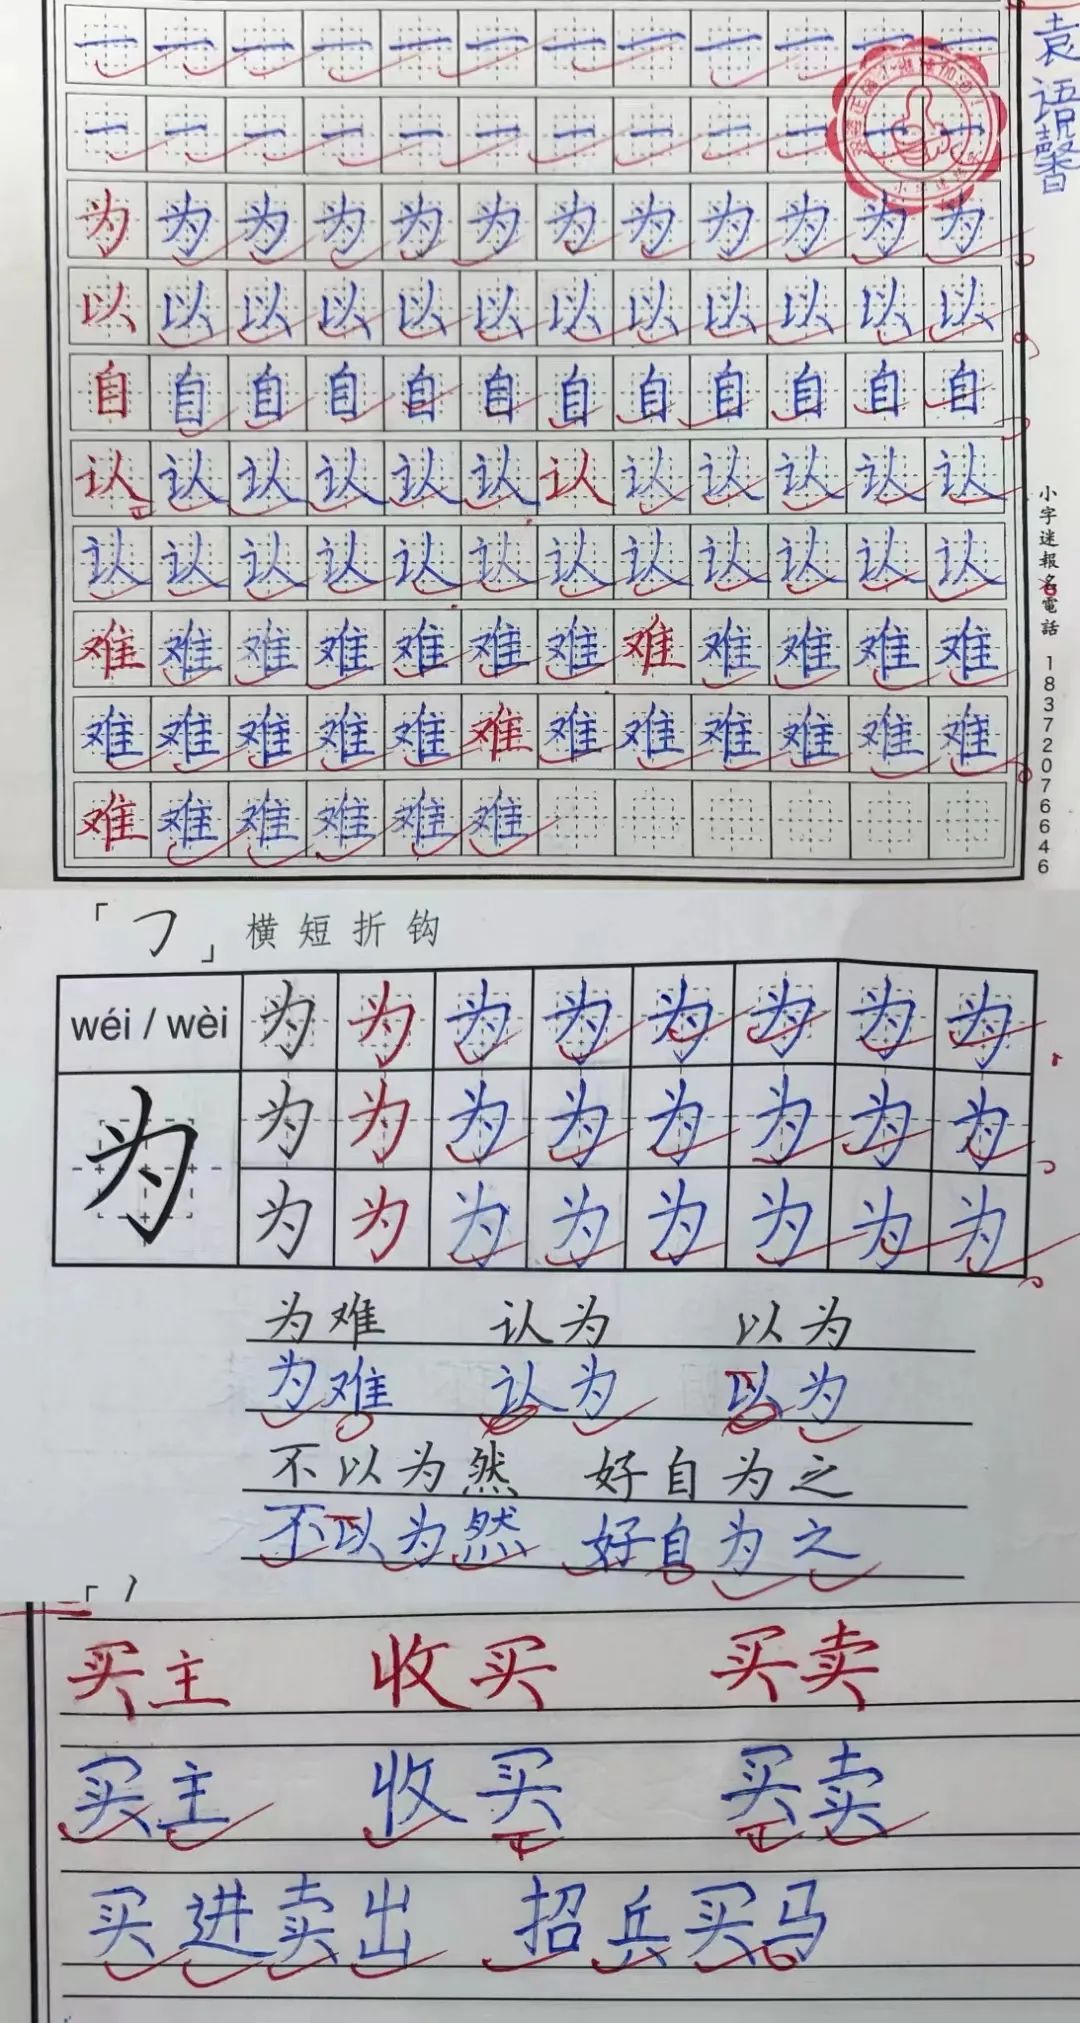 一一一一一一一一一一一一
一一一一一一一一一一一一
为为为为为为为为为为为为
以以以以以以以以以以以以
自自自自自自自自自自自自
认认认认认认认认认认认认
认认认认认认认认认认认认
难难难难难难难难难难难难
难难难难难难难难难难难难
难难难难难难
袁语馨
小字迷報名電話 18372076646
「㇆」横短折钩
wéi / wèi 为为为为为为为为
为 为为为为为为为为
为为为为为为为为
为难 认为 以为
为难 认为 以为
不以为然 好自为之
不以为然 好自为之
买主 收买 买卖
买主 收买 买卖
买进卖出 招兵买马